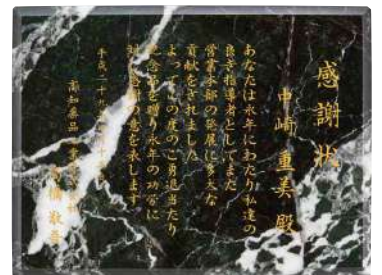 感謝状
中崎重美殿
あなたは永年にわたり私達の
良き指導者としてまた
営業本部の発展に多大な
貢献をされました
よってこの度のご勇退当たり
記念品を贈り永年の功労に
対し感謝の意を表します
平成二十九年
高知薬品工業
高橋敬